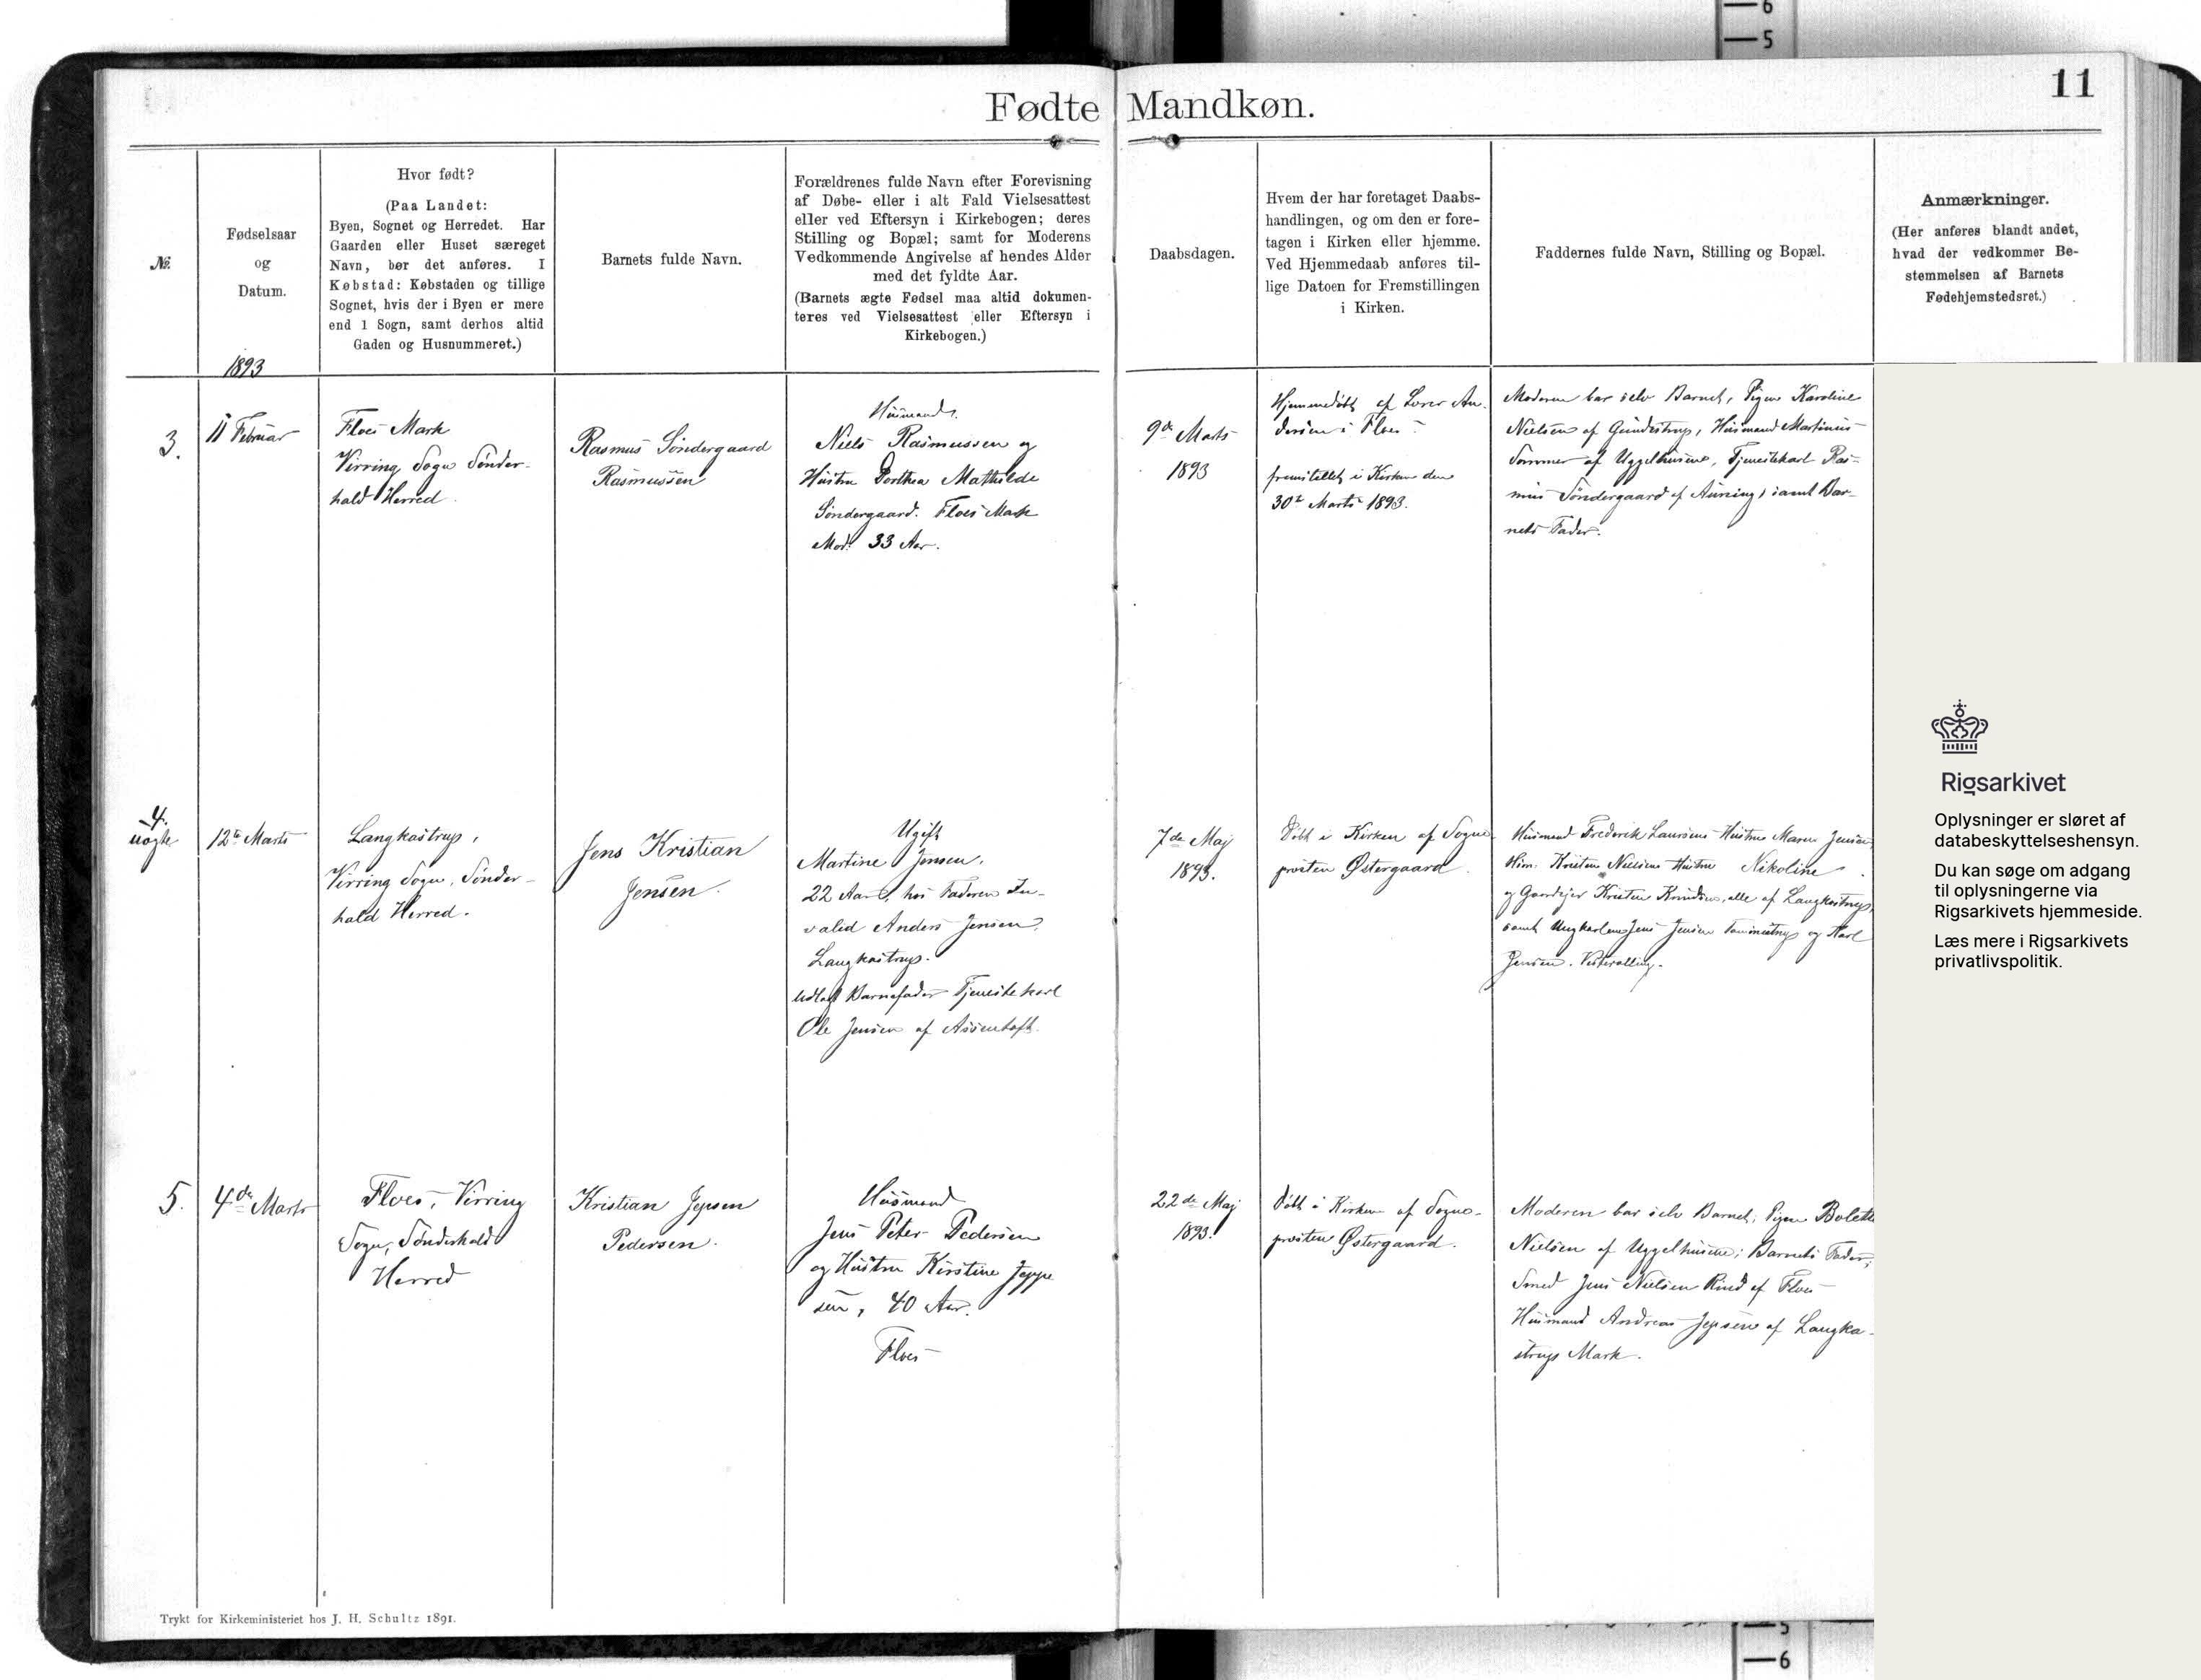 6
5
11
Fødte Mandkøn.
№.
Fødselsaar
og
Datum.
1893
Hvor født?
(Paa Landet:
Byen, Sognet og Herredet. Har
Gaarden eller Huset særeget
Navn, bør det anføres. I
Købstad: Købstaden og tillige
Sognet, hvis der i Byen er mere
end 1 Sogn, samt derhos altid
Gaden og Husnummeret.)
Barnets fulde Navn.
Forældrenes fulde Navn efter Forevisning
af Døbe- eller i alt Fald Vielsesattest
eller ved Eftersyn i Kirkebogen; deres
Stilling og Bopæl; samt for Moderens
Vedkommende Angivelse af hendes Alder
med det fyldte Aar.
(Barnets ægte Fødsel maa altid dokumen-
teres ved Vielsesattest eller Eftersyn i
Kirkebogen.)
Daabsdagen.
Hvem der har foretaget Daabs-
handlingen, og om den er fore-
tagen i Kirken eller hjemme.
Ved Hjemmedaab anføres til-
lige Datoen for Fremstillingen
i Kirken.
Faddernes fulde Navn, Stilling og Bopæl.
Anmærkninger.
(Her anføres blandt andet,
hvad der vedkommer Be-
stemmelsen af Barnets
Fødehjemstedsret.)
3.
11 Februar
Floes Mark
Virring Sogn Sønder-
hald Herred.
Rasmus Søndergaard
Rasmussen
Husmand
Niels Rasmussen og
Hustru Dorthea Mathilde
Søndergaard. Floes Mark
Mod. 33 Aar.
9de Marts
1893
Hjemmedøbt af Lærer An-
dersen i Floes
fremstillet i Kirken den
30te Marts 1893.
Moderen bar selv Barnet, Pigen Karoline
Nielsen af Gundestrup, Husmand Martinus
Sommer af Uggelhusene, Tjenestekarl Ras-
mus Søndergaard af Auning, samt Bar-
nets Fader.
4.
uægte
12te Marts
Langkastrup,
Virring Sogn, Sønder-
hald Herred.
Jens Kristian
Jensen.
Ugift
Martine Jensen,
22 Aar, hos Faderen In-
valid Anders Jensen,
Langkastrup.
Udlagt Barnefader Tjenestekarl
Ole Jensen af Assentoft.
7de Maj
1893.
Døbt i Kirken af Sogne-
præsten Østergaard.
Husmand Frederik Laursens Hustru Maren Jensen
Hsm. Kristen Nielsens Hustru Nikoline
og Gaardejer Kristen Knudsen, alle af Langkastrup,
samt Ungkarlene Jens Jensen Tammestrup og Karl
Jensen. Vesteralling.
5.
4de Marts
Floes, Virring
Sogn, Sønderhald
Herred
Kristian Jepsen
Pedersen.
Husmand
Jens Peter Pedersen
og Hustru Kirstine Jeppe
sen, 40 Aar.
Floes
22de Maj
1893.
Døbt i Kirken af Sogne-
præsten Østergaard.
Moderen bar selv Barnet, Pigen Bolette
Nielsen af Uggelhusene; Barnets Fader;
Smed Jens Nielsen Rind af Floes
Husmand Andreas Jepsen af Langka-
strup Mark.
Rigsarkivet
Oplysninger er sløret af
databeskyttelseshensyn.
Du kan søge om adgang
til oplysningerne via
Rigsarkivets hjemmeside.
Læs mere i Rigsarkivets
privatlivspolitik.
Trykt for Kirkeministeriet hos J. H. Schultz 1891.
5
6